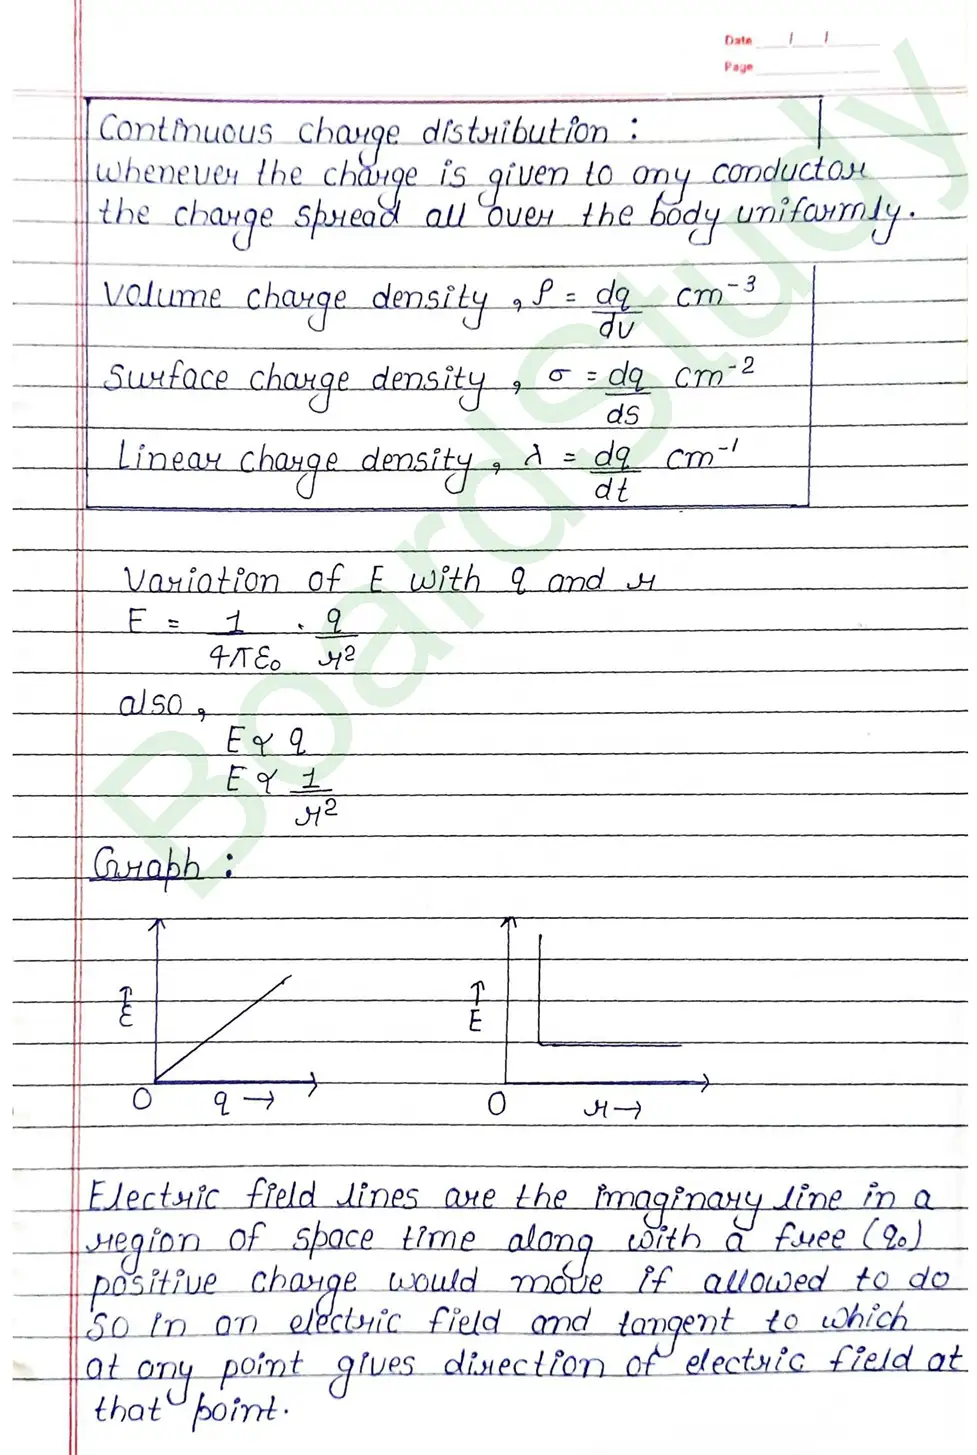 Date / /
Page
Continuous charge distribution :
whenever the charge is given to any conductor
the charge spread all over the body uniformly.
Volume charge density, ρ = dq/dv cm⁻³
Surface charge density, σ = dq/ds cm⁻²
Linear charge density, λ = dq/dt cm⁻¹
Variation of E with q and r
E = 1/4πε₀ · q/r²
also,
E ∝ q
E ∝ 1/r²
Graph :
↑ E
O q →
↑ E
O r →
Electric field lines are the imaginary line in a
region of space time along with a free (q₀)
positive charge would move if allowed to do
so in an electric field and tangent to which
at any point gives direction of electric field at
that point.
Boardstudy